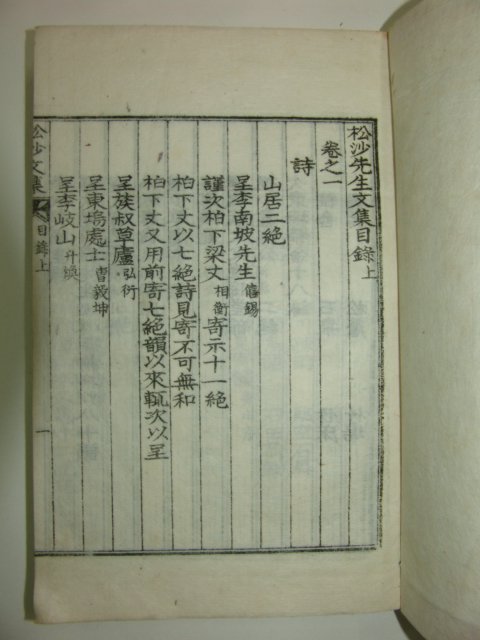 松沙先生文集目錄上
卷之一
詩
山居二絶
呈李南坡先生僖錫
謹次柏下梁丈相衡寄示十一絶
柏下丈以七絶詩見寄不可無和
柏下丈又用前寄七絶韻以來輒次以呈
呈族叔草廬弘衍
呈東塢處士曺毅坤
呈李岐山升煥
松沙文集 目錄上 一